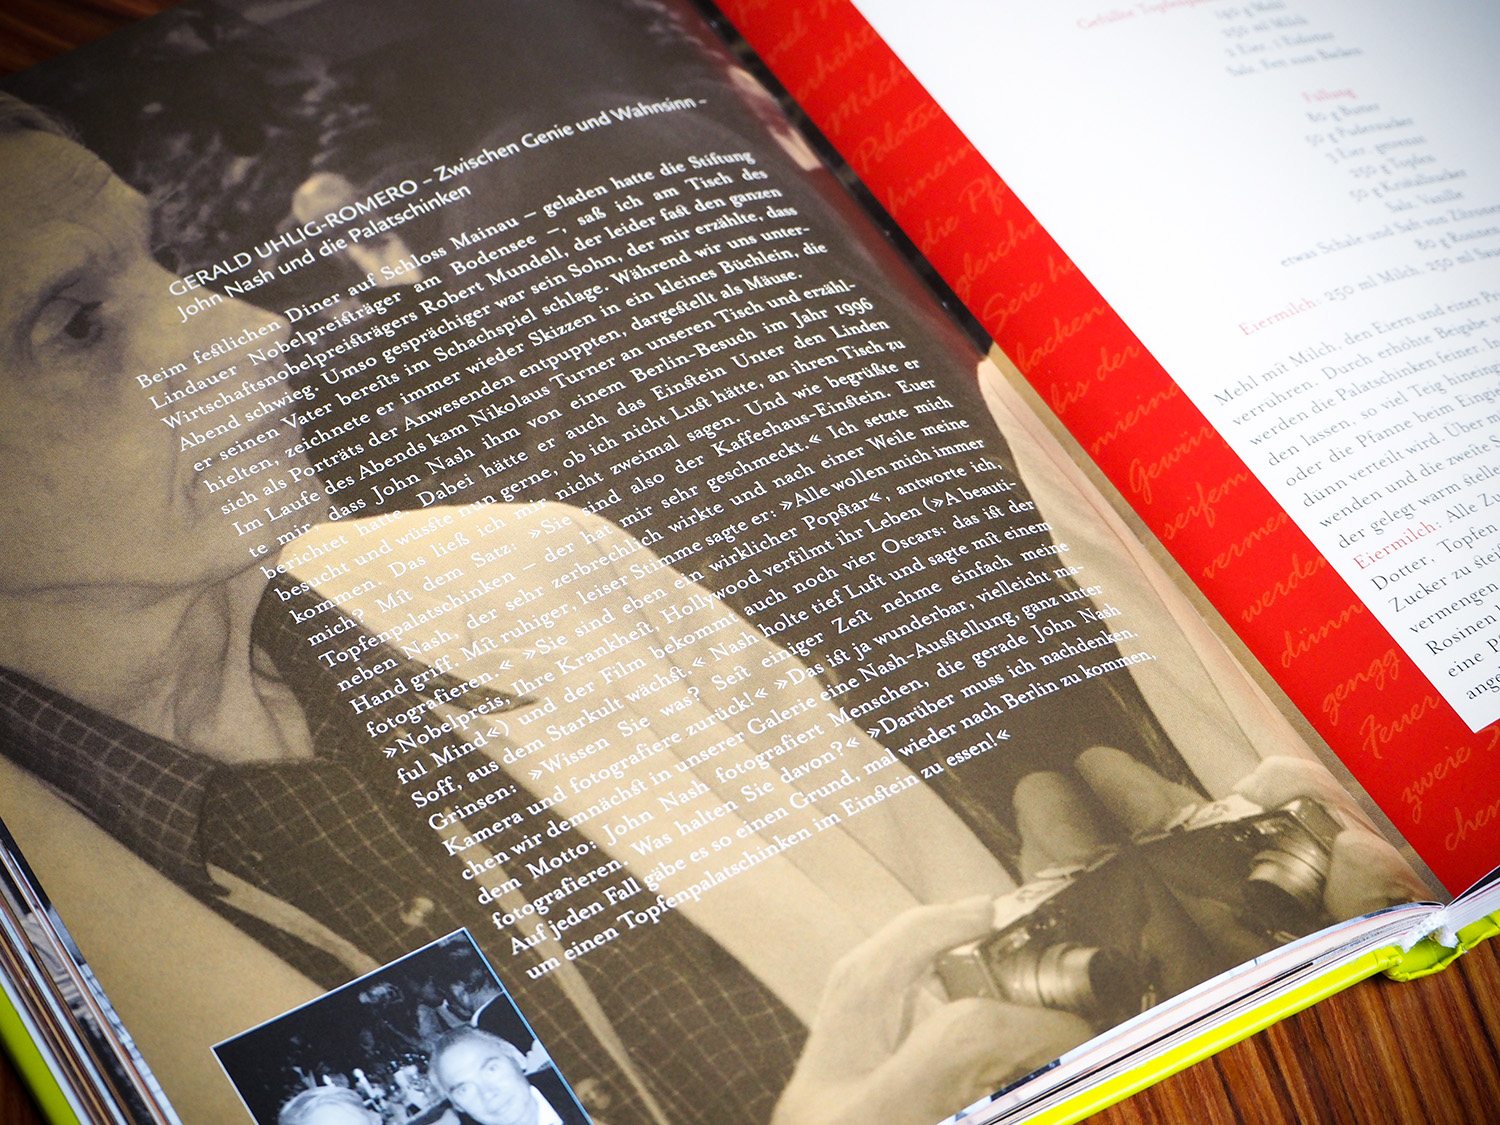 GERALD UHLIG-ROMERO – Zwischen Genie und Wahnsinn –
John Nash und die Palatschinken
Beim festlichen Diner auf Schloss Mainau – geladen hatte die Stiftung
Lindauer Nobelpreisträger am Bodensee –, saß ich am Tisch des
Wirtschaftsnobelpreisträgers Robert Mundell, der leider fast den ganzen
Abend schwieg. Umso gesprächiger war sein Sohn, der mir erzählte, dass
er seinen Vater bereits im Schachspiel schlage. Während wir uns unter-
hielten, zeichnete er immer wieder Skizzen in ein kleines Büchlein, die
sich als Porträts der Anwesenden entpuppten, dargestellt als Mäuse.
Im Laufe des Abends kam Nikolaus Turner an unseren Tisch und erzähl-
te mir, dass John Nash ihm von einem Berlin-Besuch im Jahr 1996
berichtet hatte. Dabei hätte er auch das Einstein Unter den Linden
besucht und wüsste nun gerne, ob ich nicht Lust hätte, an ihren Tisch zu
kommen. Das ließ ich mir nicht zweimal sagen. Und wie begrüßte er
mich? Mit dem Satz: »Sie sind also der Kaffeehaus-Einstein. Euer
Topfenpalatschinken – der hat mir sehr geschmeckt.« Ich setzte mich
neben Nash, der sehr zerbrechlich wirkte und nach einer Weile meine
Hand griff. Mit ruhiger, leiser Stimme sagte er: »Alle wollen mich immer
fotografieren.« »Sie sind eben ein wirklicher Popstar«, antworte ich,
»Nobelpreis, Ihre Krankheit, Hollywood verfilmt ihr Leben (»A beauti-
ful Mind«) und der Film bekommt auch noch vier Oscars: das ist der
Soff, aus dem Starkult wächst.« Nash holte tief Luft und sagte mit einem
Grinsen: »Wissen Sie was? Seit einiger Zeit nehme einfach meine
Kamera und fotografiere zurück!« »Das ist ja wunderbar, vielleicht ma-
chen wir demnächst in unserer Galerie eine Nash-Ausstellung, ganz unter
dem Motto: John Nash fotografiert Menschen, die gerade John Nash
fotografieren. Was halten Sie davon?« »Darüber muss ich nachdenken.
Auf jeden Fall gäbe es so einen Grund, mal wieder nach Berlin zu kommen,
um einen Topfenpalatschinken im Einstein zu essen!«
250 ml Milch
Füllung
80 g Butter
50 g Puderzucker
250 g Topfen
50 g Kristallzucker
Salz, Vanille
etwas Schale und Saft von Zitronen
80 g Rosinen
Eiermilch: 250 ml Milch, 250 ml
Mehl mit Milch, den Eiern und einer
verrühren. Durch erhöhte Beigabe
werden die Palatschinken feiner. In
den lassen, so viel Teig hineing
oder die Pfanne beim Eingie
dünn verteilt wird. Über m
wenden und die zweite S
der gelegt warm stelle
Eiermilch: Alle Zu
Dotter, Topfen
Zucker zu stei
vermengen
Rosinen
eine P
ange